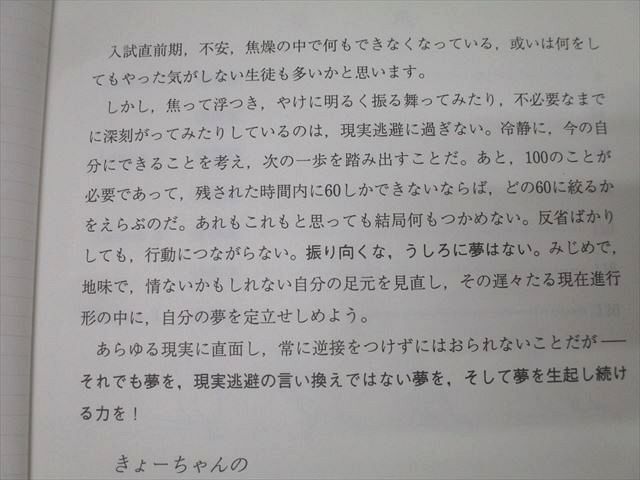 入試直前期，不安，焦燥の中で何もできなくなっている，或いは何をし
てもやった気がしない生徒も多いかと思います。
しかし，焦って浮つき，やけに明るく振る舞ってみたり，不必要なまで
に深刻がってみたりしているのは，現実逃避に過ぎない。冷静に，今の自
分にできることを考え，次の一歩を踏み出すことだ。あと，100のことが
必要であって，残された時間内に60しかできないならば，どの60に絞るか
をえらぶのだ。あれもこれもと思っても結局何もつかめない。反省ばかり
しても，行動につながらない。振り向くな，うしろに夢はない。みじめで，
地味で，情ないかもしれない自分の足元を見直し，その遅々たる現在進行
形の中に，自分の夢を定立せしめよう。
あらゆる現実に直面し，常に逆接をつけずにはおられないことだが――
それでも夢を，現実逃避の言い換えではない夢を，そして夢を生起し続け
る力を！
きょーちゃんの